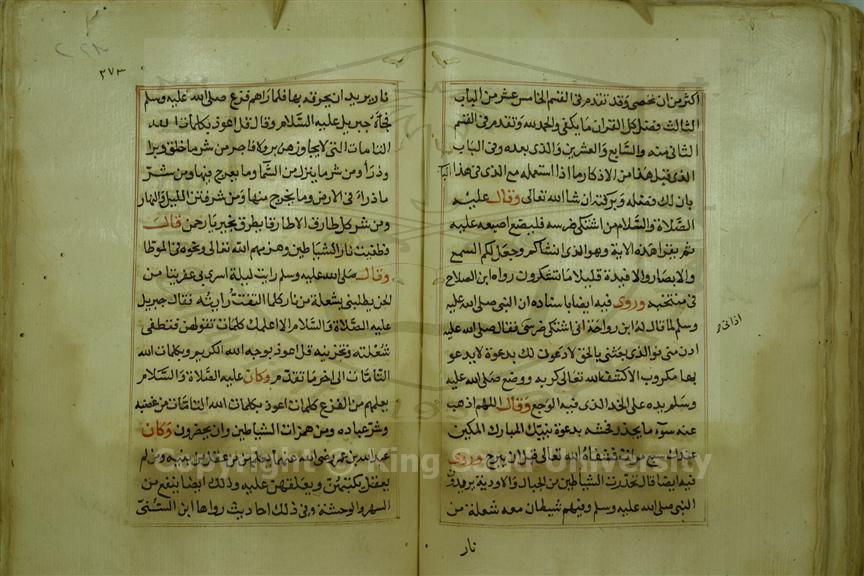 اكثر من ان تحصى وقد تقدم في القسم الخامس عشر من الباب
الثالث فضل كل القران ما يكفى والحمد لله وتقدم في القسم
الثانى منه والسابع والعشرين والذى بعده وفى الباب
الذى قبل هذا من الاذكار ما اذا استعمله مع الذى فى هذا
بان لك فضله وبركته ان شا الله تعالى وقال عليه
الصلاة والسلام من اشتكى ضرسه فليضع اصبعه عليه
ثم يقرا هذه الاية وهو الذى انشاكم وجعل لكم السمع
والابصار والافيدة قليلا ما تشكرون رواه ابن الصلاح
فى منتخبه وروى فيه ايضا باسناده ان النبى صلى الله عليه
وسلم لما قال له ابن رواحة انى اشتكى ضرسى فقال صلى الله عليه
ادن منى نوالذى بعثنى بالحق لادعون لك بدعوة لا يدعو
بها مكروب الا كشف الله تعالى كربه ووضع صلى الله عليه
وسلم يده على الخد الذى فيه الوجع وقال اللهم اذهب
عنه سوء ما يجد وفحشه بدعوة نبيك المبارك المكين
عندك سبع مرات فشفاه الله تعالى قبل ان يبرح وروى
فيه ايضا قال تحدرت الشياطين من الجبال والاودية يريدون
النبى صلى الله عليه وسلم وفيهم شيطان معه شعلة من
نار
٢٧٣
نار يريد ان يحرقه بها فلما راهم فزع صلى الله عليه وسلم
فجاءه جبريل عليه السلام وقال قل اعوذ بكلمات الله
التامات التى لا يجاوزهن بر ولا فاجر من شر ما خلق وبرا
وذرا ومن شر ما ينزل من السما وما يعرج فيها ومن شر
ما ذرا فى الارض وما يخرج منها ومن شر فتن الليل والنهار
ومن شر كل طارق الا طارقا يطرق بخير يا رحمن قال
فطفيت نار الشياطين وهزمهم الله تعالى ونحوه فى الموطا
وقال صلى الله عليه وسلم رايت ليلة اسرى بى عفريتا من
الجن يطلبنى بشعلة من نار كلما التفت رايته فقال جبريل
عليه الصلاة والسلام الا اعلمك كلمات تقولهن فتنطفى
شعلته وتخر لفيه قل اعوذ بوجه الله الكريم وبكلمات الله
التامات الى اخر ما تقدم وكان عليه الصلاة والسلام
يعلمهم من الفزع كلمات اعوذ بكلمات الله التامات من غضبه
وشر عباده ومن همزات الشياطين وان يحضرون وكان
عبد الله بن عمر رضى الله عنهما يعلمهن من عقل من بنيه ومن لم
يعقل يكتبهن ويعلقهن عليه وذلك ايضا ينفع من
السهر والوحشة وفى ذلك احاديث رواها ابن السنى
Copyright © King Saud University